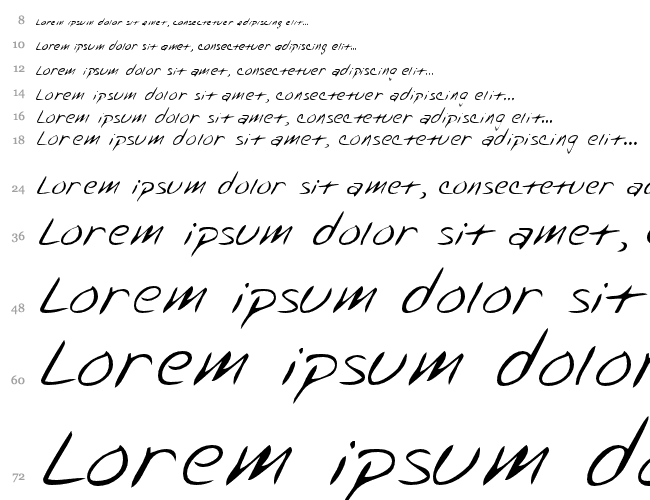 8 Lorem ipsum dolor sit amet, consectetuer adipiscing elit...
10 Lorem ipsum dolor sit amet, consectetuer adipiscing elit...
12 Lorem ipsum dolor sit amet, consectetuer adipiscing elit...
14 Lorem ipsum dolor sit amet, consectetuer adipiscing elit...
16 Lorem ipsum dolor sit amet, consectetuer adipiscing elit...
18 Lorem ipsum dolor sit amet, consectetuer adipiscing elit...
24 Lorem ipsum dolor sit amet, consectetuer
36 Lorem ipsum dolor sit amet,
48 Lorem ipsum dolor sit
60 Lorem ipsum dolor
72 Lorem ipsum